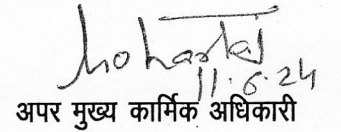 11.6.24
अपर मुख्य कार्मिक अधिकारी